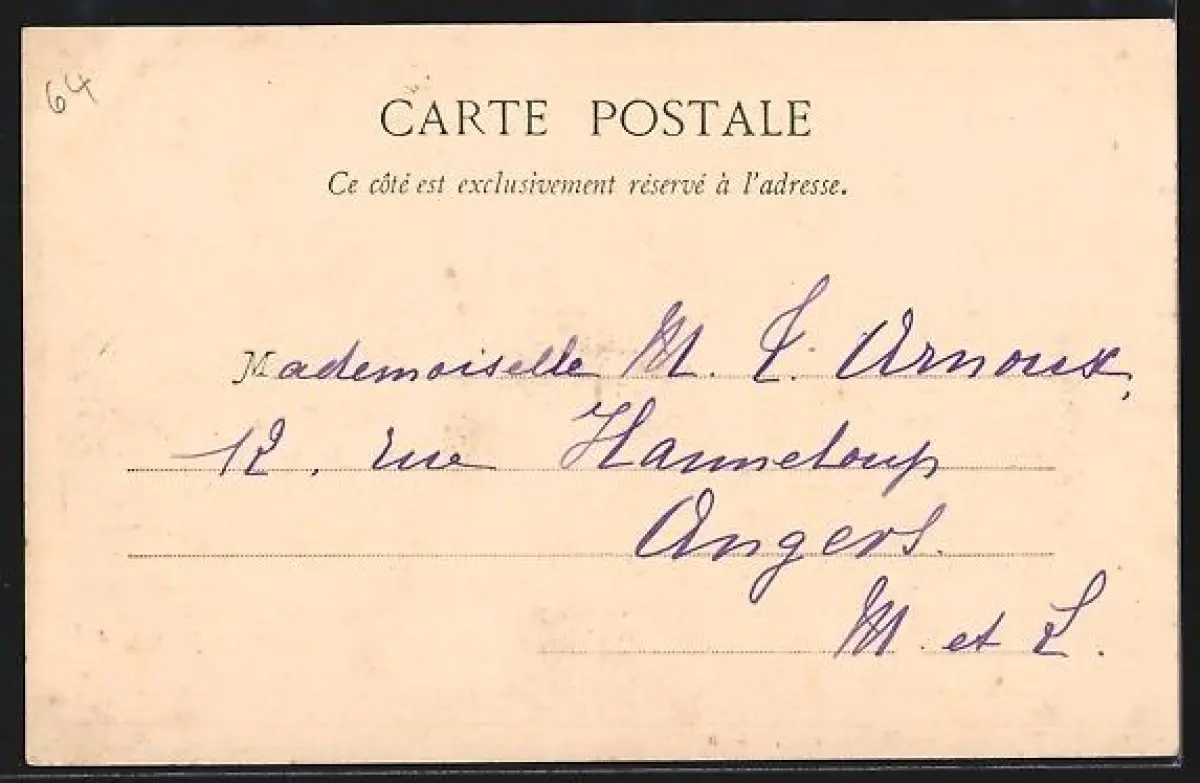 64
CARTE POSTALE
Ce côté est exclusivement réservé à l'adresse.
Mademoiselle M. L. Arnoux,
12, rue Hanneloup
Angers.
M et L.